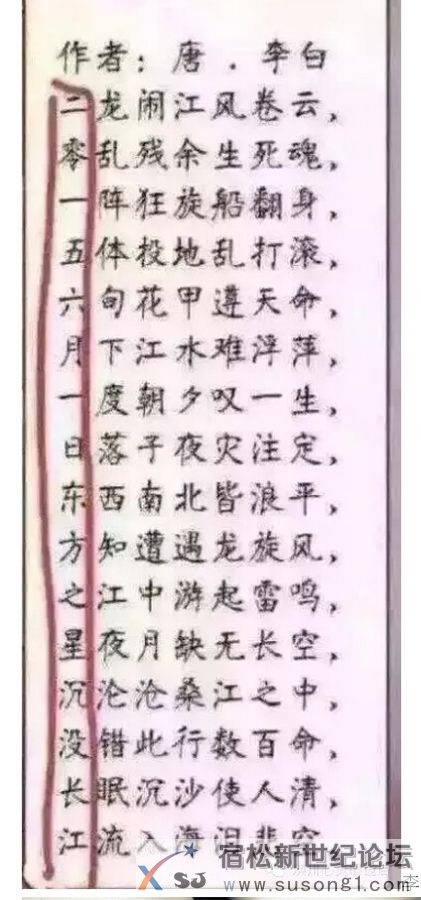 作者：唐．李白
二龙闹江风卷云，
零乱残余生死魂，
一阵狂旋船翻身，
五体投地乱打滚，
六旬花甲遵天命，
月下江水难浮萍，
一度朝夕叹一生，
日落子夜灾注定，
东西南北皆浪平，
方知遭遇龙旋风，
之江中游起雷鸣，
星夜月缺无长空，
沉沦沧桑江之中，
没错此行数百命，
长眠沉沙使人清，
江流入海泪悲空
宿松新世纪论坛
SJ
www.susong1.com
李